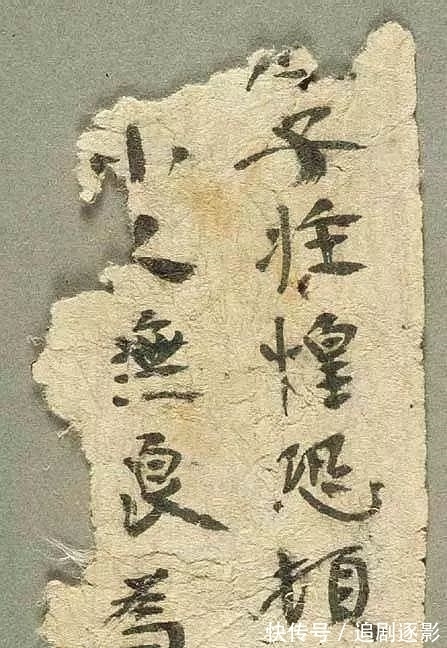 子惶恐頓
小無良
快传号 / 追剧逐影